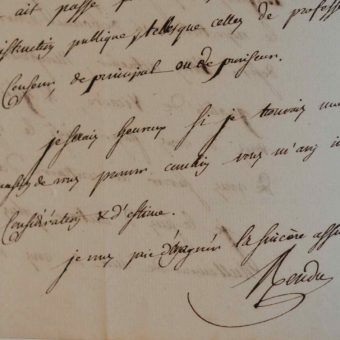 ait passé
instruction publique, telles que celles de profess
Censeur de principal ou de proviseur.
je serais heureux si je trouvais une
de vous prouver combien vous m'avez i
Considération & d'estime.
je vous prie d'agréer la sincère assu
Rendu